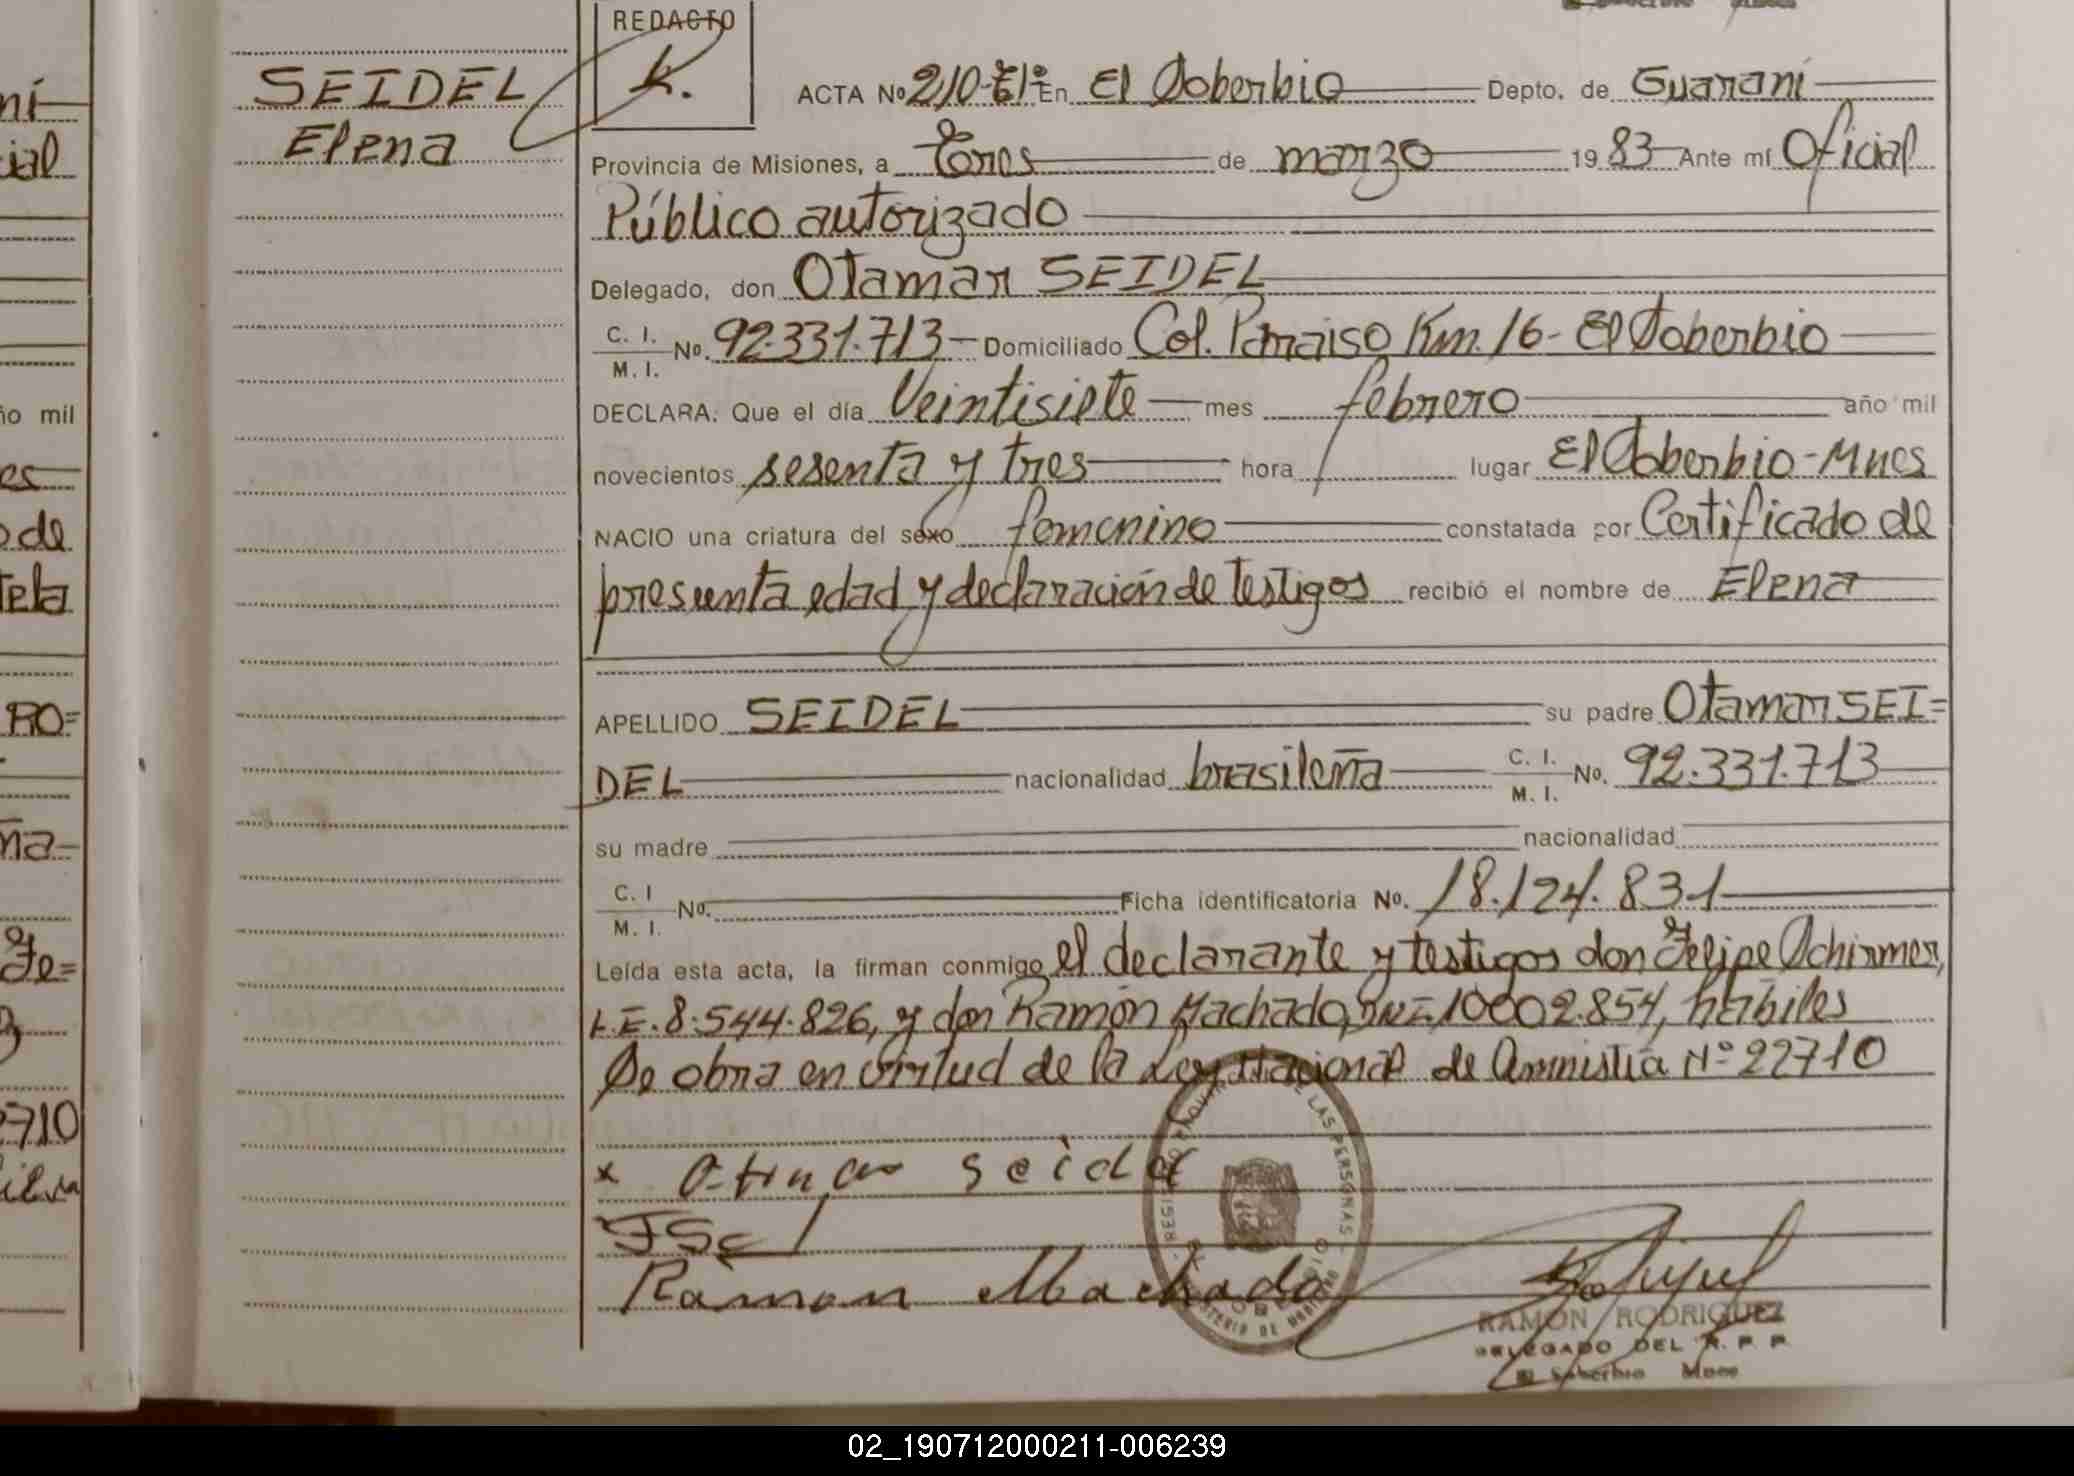 SEIDEL
Elena
REDACTO
ACTA Nº 210-Tº1º- En El Soberbio Depto. de Guaraní
Provincia de Misiones, a Tores de marzo 1983 Ante mí Oficial
Público autorizado
Delegado, don Otamar SEIDEL
C. I. M. I. No. 92.331.713 - Domiciliado Col. Paraiso Km. 16 - El Soberbio
DECLARA: Que el día Veintisiete mes febrero año mil
novecientos sesenta y tres hora lugar El Soberbio - Mnes
NACIO una criatura del sexo femenino constatada por Certificado de
presunta edad y declaración de testigos recibió el nombre de Elena
APELLIDO SEIDEL su padre Otamar SEI=
DEL nacionalidad brasileña C. I. M. I. No. 92.331.713
su madre nacionalidad
C. I M. I. No. Ficha identificatoria No. 18.124.831
Leída esta acta, la firman conmigo el declarante y testigos don Felipe Schirmer,
L.E. 8.544.826, y don Ramón Machado, DNI= 10002.854, hábiles
Se obra en virtud de la Ley Nacional de Amnistía Nº 22710
x Otmar Seidel
Ramon Machado
REGISTRO PROVINCIAL DE LAS PERSONAS
EL SOBERBIO
MINISTERIO DE GOBIERNO
RAMON RODRIGUEZ
DELEGADO DEL R. P. P.
El Soberbio Mnes
ní
ial
ño mil
es
o de
tela
RO=
na
Fe=
2710
02_190712000211-006239